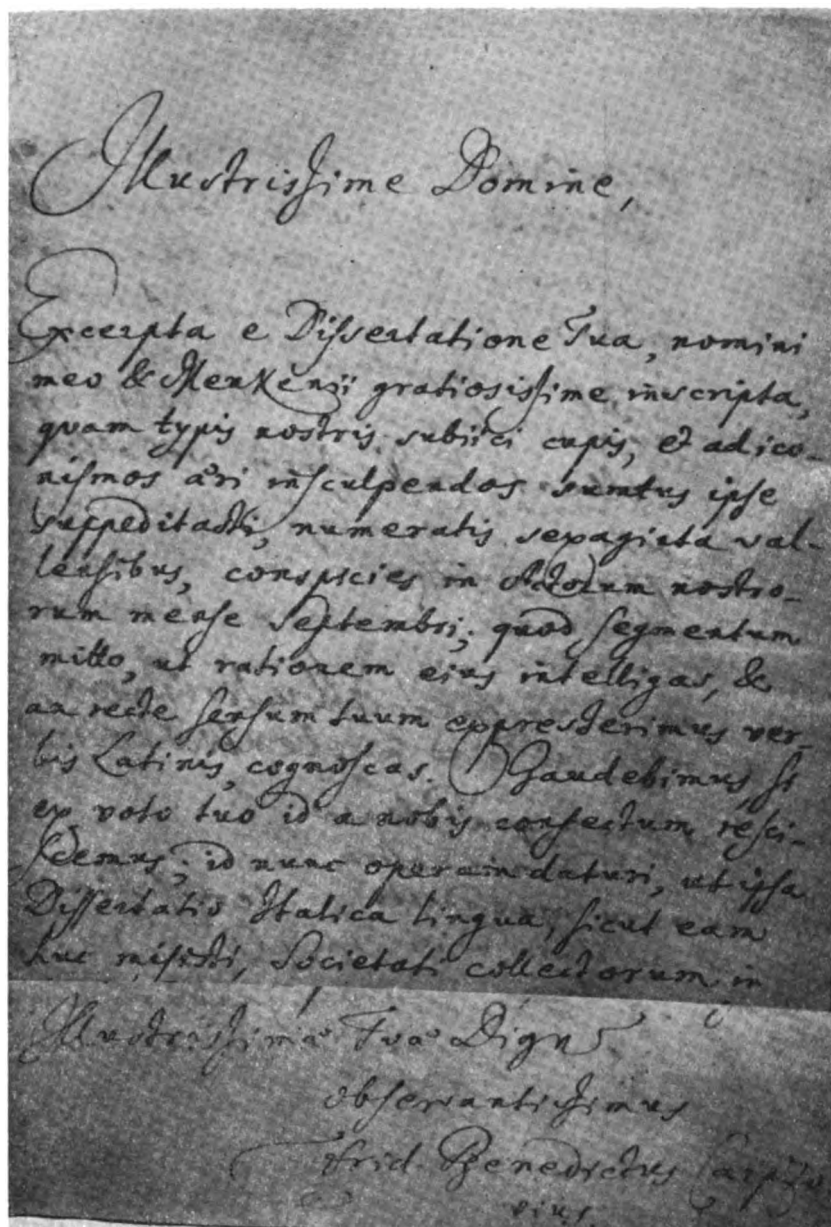 Illustrissime Domine,
Excerpta e Dissertatione Tua, nomini
meo & Menkenii gratiosissime inscripta,
quam typis nostris subiici cupis, et ad ico-
nismos æri insculpendos sumtus ipse
suppeditasti, numeratis sexaginta val-
lensibus, conspicies in Actorum nostro-
rum mense Septembri; quod segmentum
mitto, ut rationem eius intelligas, &
an recte sensum tuum expresserimus ver-
bis Latinis, cognoscas. Gaudebimus, si
ex voto tuo id a nobis confectum resci-
scemus; id nunc operam daturi, ut ipsa
Dissertatio Italica lingua, sicut eam
huc misisti, Societati collectorum in
Illustrissimæ Tuæ Dign
observantissimus
Frid. Benedictus Carpzo
vius